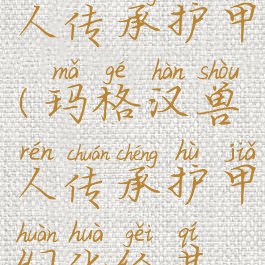 人传承护甲
mǎ gé hàn shòu
(玛格汉兽
rén chuán chéng hù jiǎ
人传承护甲
huàn huà gěi qí
幻化给其